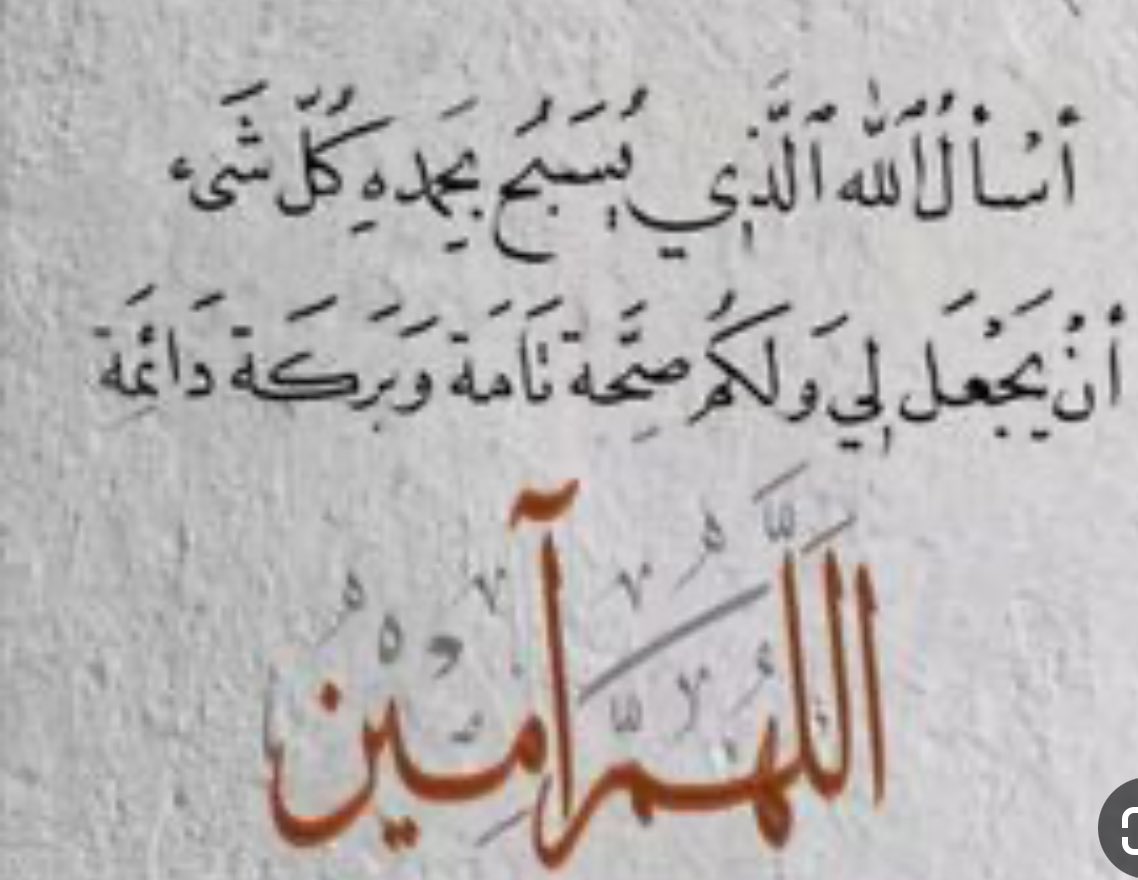 أسْألُ اللهَ الَّذِي يُسَبحُ بِحَمدهِ كُلّ شَىء
أنْ يَجْعَل لِي وَلكُم صِحَّة تَامَة وَبَركَة دَائمِة
اللَّهم آمين